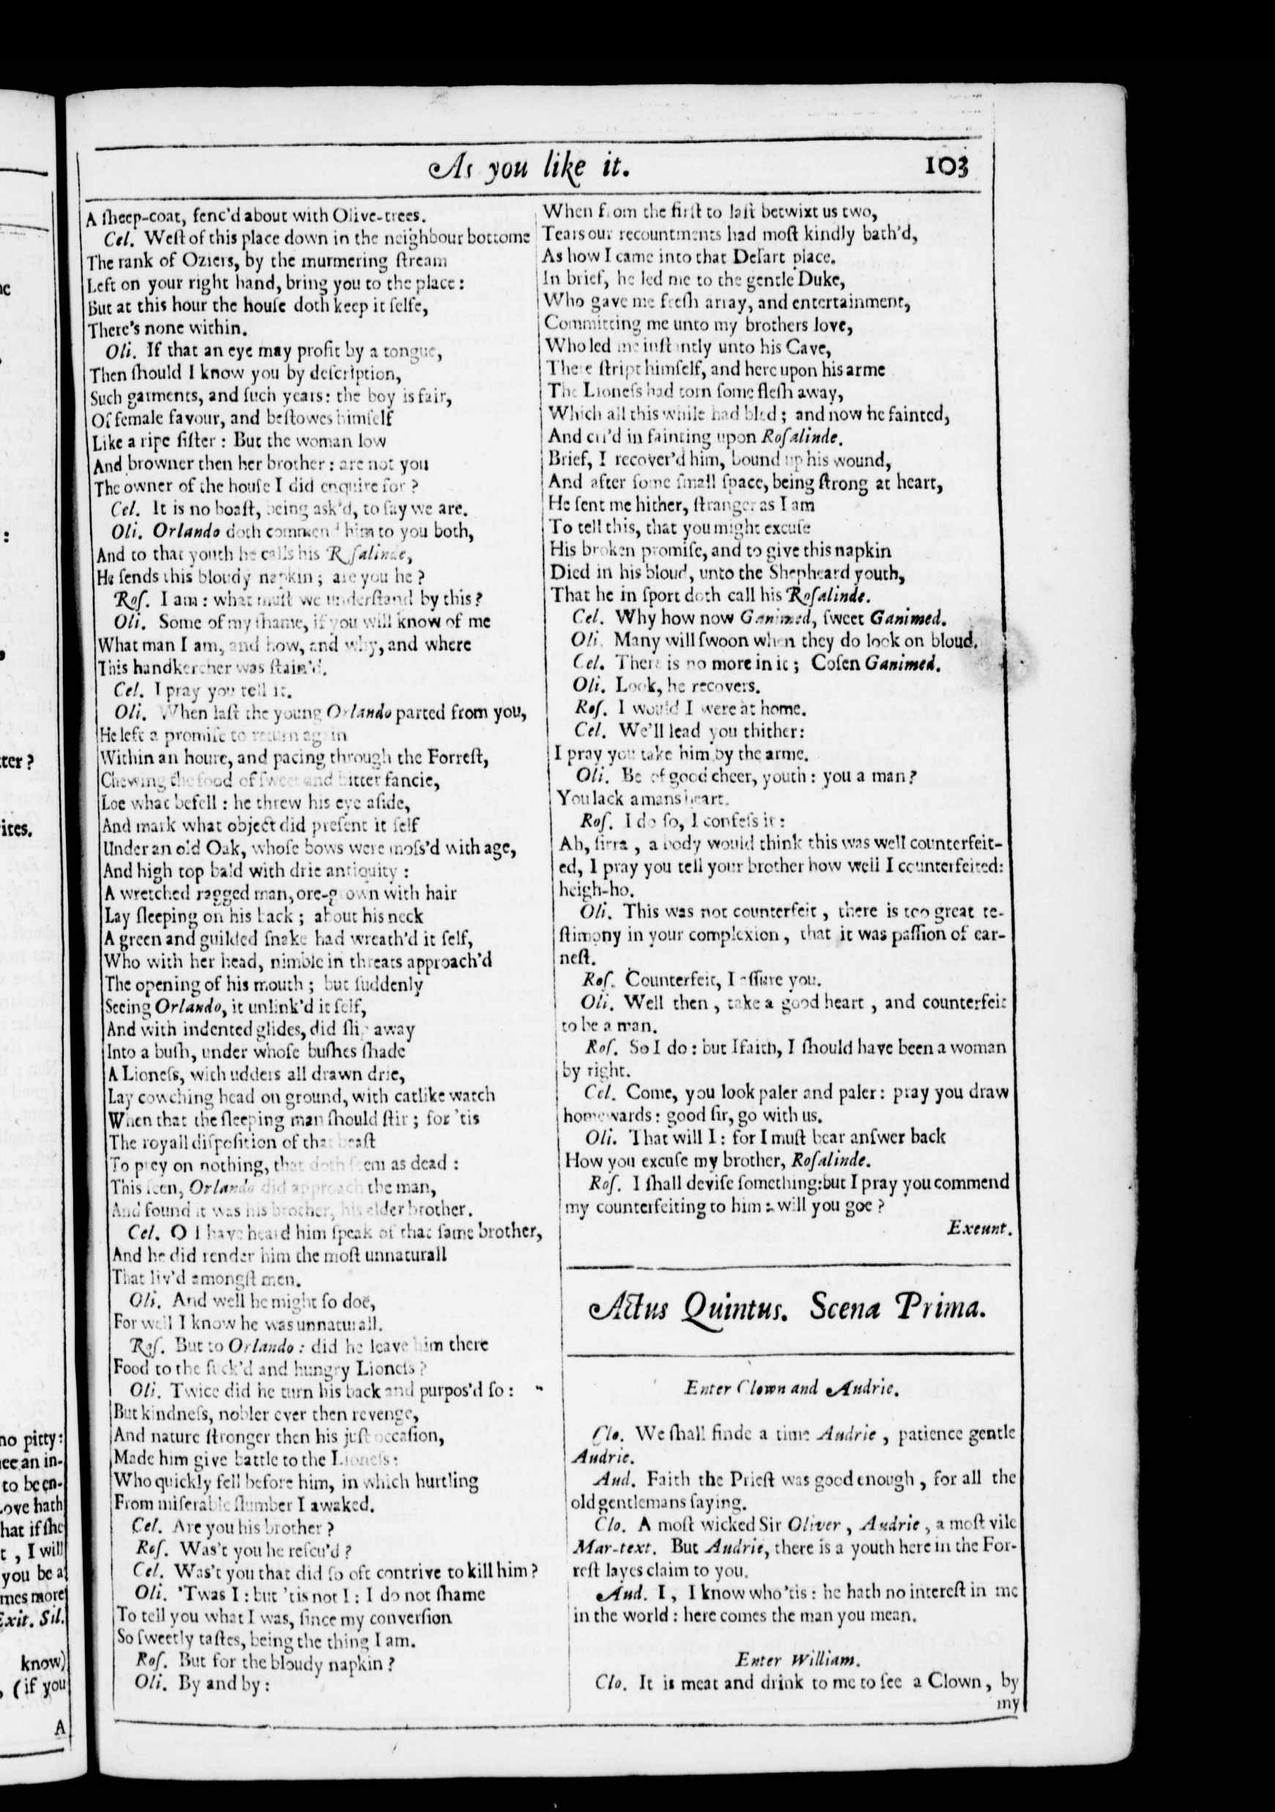 As you like it. 103
A ſheep-coat, fenc'd about with Olive-trees.
Cel. Weſt of this place down in the neighbour bottome
The rank of Oziers, by the murmering ſtream
Left on your right hand, bring you to the place:
But at this hour the houſe doth keep it ſelfe,
There's none within.
Oli. If that an eye may profit by a tongue,
Then ſhould I know you by deſcription,
Such garments, and ſuch years: the boy is fair,
Of female favour, and beſtowes himſelf
Like a ripe ſiſter: But the woman low
And browner then her brother: are not you
The owner of the houſe I did enquire for?
Cel. It is no boaſt, being ask'd, to ſay we are.
Oli. Orlando doth commend him to you both,
And to that youth he calls his Roſalinde,
He ſends this bloudy napkin; are you he?
Roſ. I am: what muſt we underſtand by this?
Oli. Some of my ſhame, if you will know of me
What man I am, and how, and why, and where
This handkercher was ſtain'd.
Cel. I pray you tell it.
Oli. When laſt the young Orlando parted from you,
He left a promiſe to return again
Within an houre, and pacing through the Forreſt,
Chewing the food of ſweet and bitter fancie,
Loe what befell: he threw his eye aſide,
And mark what object did preſent it ſelf
Under an old Oak, whoſe bows were moſs'd with age,
And high top bald with drie antiquity:
A wretched ragged man, ore-grown with hair
Lay ſleeping on his back; about his neck
A green and guilded ſnake had wreath'd it ſelf,
Who with her head, nimble in threats approach'd
The opening of his mouth; but ſuddenly
Seeing Orlando, it unlink'd it ſelf,
And with indented glides, did ſlip away
Into a buſh, under whoſe buſhes ſhade
A Lioneſs, with udders all drawn drie,
Lay cowching head on ground, with catlike watch
When that the ſleeping man ſhould ſtir; for 'tis
The royall diſpoſition of that beaſt
To prey on nothing, that doth ſeem as dead:
This ſeen, Orlando did approach the man,
And found it was his brother, his elder brother.
Cel. O I have heard him ſpeak of that ſame brother,
And he did render him the moſt unnaturall
That liv'd amongſt men.
Oli. And well he might ſo doe,
For well I know he was unnaturall.
Roſ. But to Orlando: did he leave him there
Food to the ſuck'd and hungry Lioneſs?
Oli. Twice did he turn his back and purpos'd ſo:
But kindneſs, nobler ever then revenge,
And nature ſtronger then his juſt occaſion,
Made him give battle to the Lioneſs:
Who quickly fell before him, in which hurtling
From miſerable ſlumber I awaked.
Cel. Are you his brother?
Roſ. Was't you he reſcu'd?
Cel. Was't you that did ſo oft contrive to kill him?
Oli. 'Twas I: but 'tis not I: I do not ſhame
To tell you what I was, ſince my converſion
So ſweetly taſtes, being the thing I am.
Roſ. But for the bloudy napkin?
Oli. By and by:
When from the firſt to laſt betwixt us two,
Tears our recountments had moſt kindly bath'd,
As how I came into that Deſart place.
In brief, he led me to the gentle Duke,
Who gave me freſh array, and entertainment,
Committing me unto my brothers love,
Who led me inſtantly unto his Cave,
There ſtript himſelf, and here upon his arme
The Lioneſs had torn ſome fleſh away,
Which all this while had bled; and now he fainted,
And cri'd in fainting upon Roſalinde.
Brief, I recover'd him, bound up his wound,
And after ſome ſmall ſpace, being ſtrong at heart,
He ſent me hither, ſtranger as I am
To tell this, that you might excuſe
His broken promiſe, and to give this napkin
Died in his bloud, unto the Shepheard youth,
That he in ſport doth call his Roſalinde.
Cel. Why how now Ganimed, ſweet Ganimed.
Oli. Many will ſwoon when they do look on bloud.
Cel. There is no more in it; Coſen Ganimed.
Oli. Look, he recovers.
Roſ. I would I were at home.
Cel. We'll lead you thither:
I pray you take him by the arme.
Oli. Be of good cheer, youth: you a man?
You lack a mans heart.
Roſ. I do ſo, I confeſs it:
Ah, ſirra, a body would think this was well counterfeit-
ed, I pray you tell your brother how well I counterfeited:
heigh-ho.
Oli. This was not counterfeit, there is too great te-
ſtimony in your complexion, that it was paſſion of ear-
neſt.
Roſ. Counterfeit, I aſſure you.
Oli. Well then, take a good heart, and counterfeit
to be a man.
Roſ. So I do: but Ifaith, I ſhould have been a woman
by right.
Cel. Come, you look paler and paler: pray you draw
homewards: good ſir, go with us.
Oli. That will I: for I muſt bear anſwer back
How you excuſe my brother, Roſalinde.
Roſ. I ſhall deviſe ſomething: but I pray you commend
my counterfeiting to him: will you goe?
Exeunt.
Actus Quintus. Scena Prima.
Enter Clown and Audrie.
Clo. We ſhall finde a time Audrie, patience gentle
Audrie.
Aud. Faith the Prieſt was good enough, for all the
old gentlemans ſaying.
Clo. A moſt wicked Sir Oliver, Audrie, a moſt vile
Mar-text. But Audrie, there is a youth here in the For-
reſt layes claim to you.
Aud. I, I know who 'tis: he hath no intereſt in me
in the world: here comes the man you mean.
Enter William.
Clo. It is meat and drink to me to ſee a Clown, by
my
ites.
no pitty:
to be en-
Love hath
hat if ſhe
, I will
you be a
mes more
Exit. Sil.
know)
, (if you
A